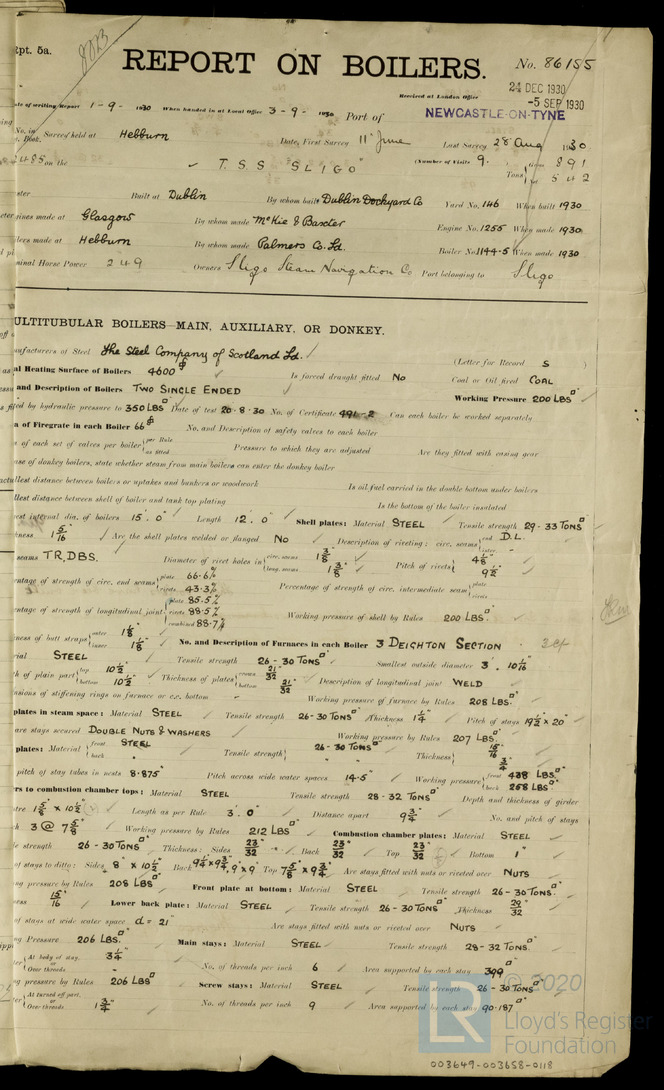 Rpt. 5a.
REPORT ON BOILERS.
No. 86155
Received at London Office 24 DEC 1930
-5 SEP 1930
ate of writing Report 1-9- 1930 When handed in at Local Office 3-9- 1930 Port of NEWCASTLE-ON-TYNE
No. in Survey held at Hebburn Date, First Survey 11 June Last Survey 28 Aug 1930
Book.
2485 on the T.S.S SLIGO (Number of Visits 9.) Gross 891
Tons Net 542
ster Built at Dublin By whom built Dublin Dockyard Co Yard No. 146 When built 1930
gines made at Glasgow By whom made McKie & Baxter Engine No. 1255 When made 1930
ilers made at Hebburn By whom made Palmers Co. Ld. Boiler No. 1144-5 When made 1930
minal Horse Power 249 Owners Sligo Steam Navigation Co Port belonging to Sligo
ULTITUBULAR BOILERS—MAIN, AUXILIARY, OR DONKEY.
nufacturers of Steel The Steel Company of Scotland Ld. (Letter for Record S
al Heating Surface of Boilers 4600 Is forced draught fitted No Coal or Oil fired COAL
and Description of Boilers TWO SINGLE ENDED Working Pressure 200 LBS
s fitted by hydraulic pressure to 350 LBS Date of test 20.8.30 No. of Certificate 491-2 Can each boiler be worked separately
a of Firegrate in each Boiler 66 No. and Description of safety valves to each boiler
a of each set of valves per boiler per Rule as fitted Pressure to which they are adjusted Are they fitted with easing gear
ase of donkey boilers, state whether steam from main boilers can enter the donkey boiler
allest distance between boilers or uptakes and bunkers or woodwork Is oil fuel carried in the double bottom under boilers
llest distance between shell of boiler and tank top plating Is the bottom of the boiler insulated
est internal dia. of boilers 15'. 0" Length 12'. 0" Shell plates: Material STEEL Tensile strength 29-33 TONS
kness 1 5/16" Are the shell plates welded or flanged No Description of riveting: circ. seams end D.L. inter
seams T.R,D.B.S. Diameter of rivet holes in circ. seams 1 3/8" long. seams 1 3/8" Pitch of rivets 4 1/8" 9 1/2"
entage of strength of circ. end seams plate 66.6% rivets 43.3% Percentage of strength of circ. intermediate seam plate rivets
entage of strength of longitudinal joint plate 85.5% rivets 88.5% combined 88.7% Working pressure of shell by Rules 200 LBS.
kness of butt straps outer 1 1/8" inner 1 1/8" No. and Description of Furnaces in each Boiler 3 DEIGHTON SECTION
rial STEEL Tensile strength 26-30 TONS Smallest outside diameter 3'. 10 1/16
th of plain part top 10 1/2" bottom 10 1/2" Thickness of plates crown 21/32" bottom 21/32" Description of longitudinal joint WELD
nsions of stiffening rings on furnace or c.c. bottom Working pressure of furnace by Rules 208 LBS.
plates in steam space: Material STEEL Tensile strength 26-30 TONS Thickness 1 1/4" Pitch of stays 19 1/2" x 20"
are stays secured DOUBLE NUTS & WASHERS Working pressure by Rules 207 LBS
plates: Material front STEEL back " Tensile strength 26-30 TONS " Thickness 15/16" 3/4"
pitch of stay tubes in nests 8.875" Pitch across wide water spaces 14.5" Working pressure front 438 LBS back 258 LBS
ers to combustion chamber tops: Material STEEL Tensile strength 28-32 TONS Depth and thickness of girder
ntre 1 5/8" x 10 1/2" Length as per Rule 3'. 0" Distance apart 9 3/4" No. and pitch of stays
ch 3 @ 7 5/8" Working pressure by Rules 212 LBS Combustion chamber plates: Material STEEL
le strength 26-30 TONS Thickness: Sides 23/32" Back 23/32" Top 23/32" Bottom 1"
of stays to ditto: Sides 8" x 10 1/2" Back 9 1/4" x 9 3/4", 9" x 9" Top 7 5/8" x 9 3/4" Are stays fitted with nuts or riveted over NUTS
ng pressure by Rules 208 LBS Front plate at bottom: Material STEEL Tensile strength 26-30 TONS
ess 15/16" Lower back plate: Material STEEL Tensile strength 26-30 TONS Thickness 29/32"
of stays at wide water space d = 21" Are stays fitted with nuts or riveted over NUTS
ng Pressure 206 LBS. Main stays: Material STEEL Tensile strength 28-32 TONS
ter At body of stay, 3 1/4" or Over threads No. of threads per inch 6 Area supported by each stay 399
ng pressure by Rules 206 LBS Screw stays: Material STEEL Tensile strength 26-30 TONS
ter At turned off part, or Over threads 1 3/4" No. of threads per inch 9 Area supported by each stay 90.187
© 2020
LR Lloyd's Register
Foundation
003649-003658-0118